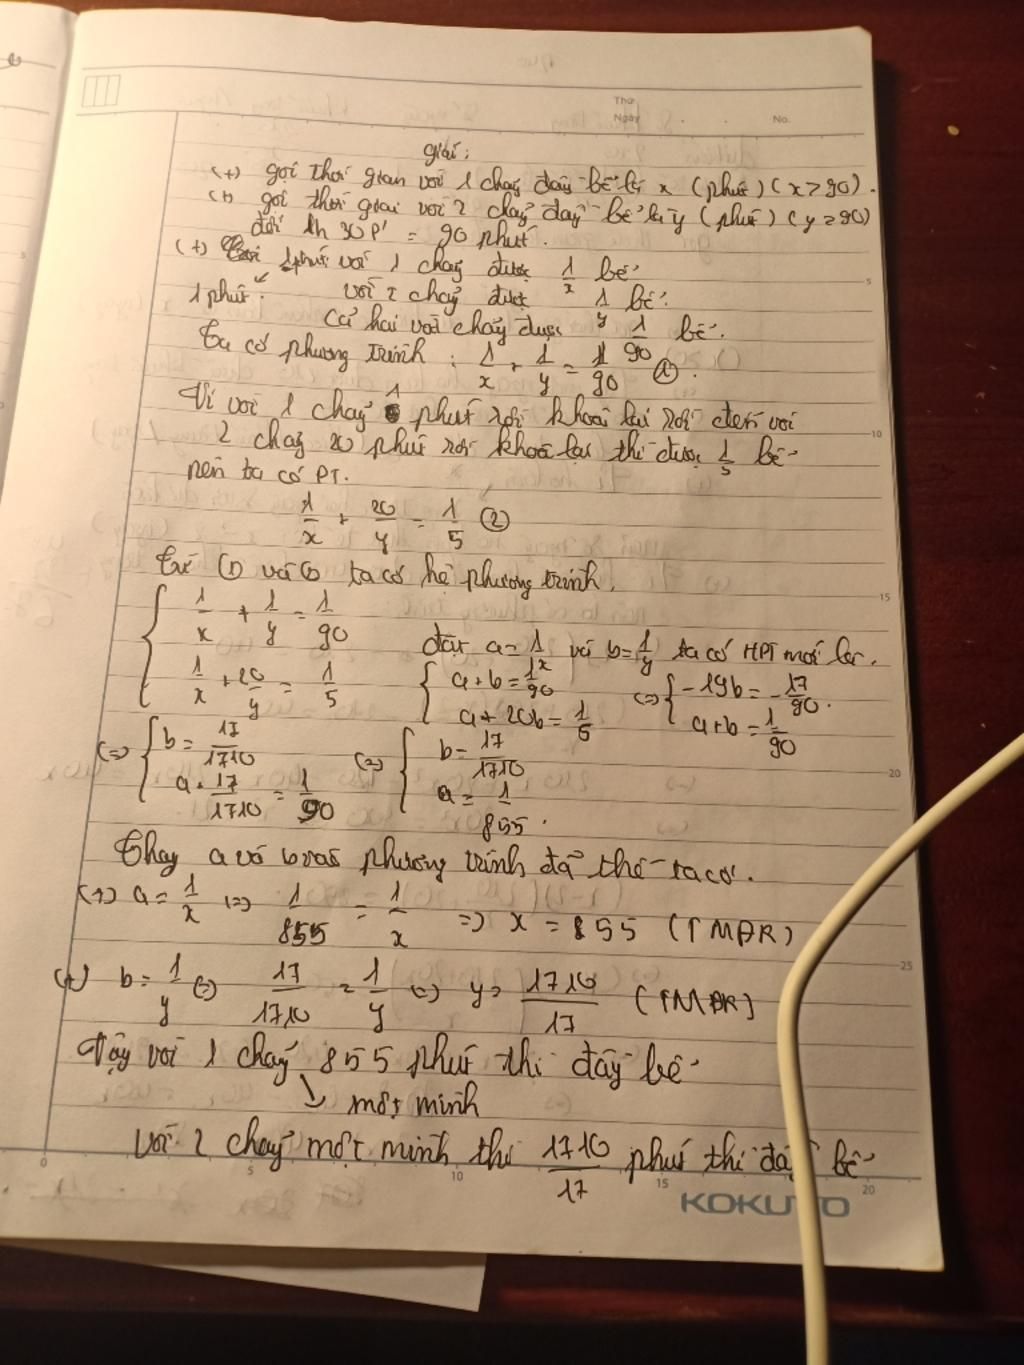 Thứ
Ngày
No.
giải:
(+) gọi thời gian vòi 1 chảy đầy bể là x (phút) (x > 90).
(+) gọi thời gian vòi 2 chảy đầy bể là y (phút) (y ≥ 90)
đổi 1h 30p' = 90 phút.
(+) 1 phút vòi 1 chảy được 1/x bể
1 phút vòi 2 chảy được 1/y bể.
cả hai vòi chảy được 1/90 bể.
Ta có phương trình : 1/x + 1/y = 1/90 ①.
Vì vòi 1 chảy 1 phút rồi khoá lại rồi đến vòi
2 chảy 20 phút rồi khoá lại thì được 1/5 bể
nên ta có PT.
1/x + 20/y = 1/5 ②
Từ ① và ② ta có hệ phương trình.
{ 1/x + 1/y = 1/90
1/x + 20/y = 1/5
đặt a = 1/x và b = 1/y ta có HPT mới là.
{ a + b = 1/90
a + 20b = 1/5
(=) { -19b = -17/90.
a + b = 1/90
(=) { b = 17/1710
a + 17/1710 = 1/90
(=) { b = 17/1710
a = 1/855.
Thay a và b vào phương trình đã thế ta có.
(+) a = 1/x (=) 1/855 = 1/x => x = 855 (TMĐK)
(+) b = 1/y (=) 17/1710 = 1/y (=) y = 1710/17 (TMĐK)
Vậy vòi 1 chảy 855 phút thì đầy bể
một mình
vòi 2 chảy một mình thì 1710/17 phút thì đầy bể
0 5 10 15 20
5
10
15
20
25
KOKUYO